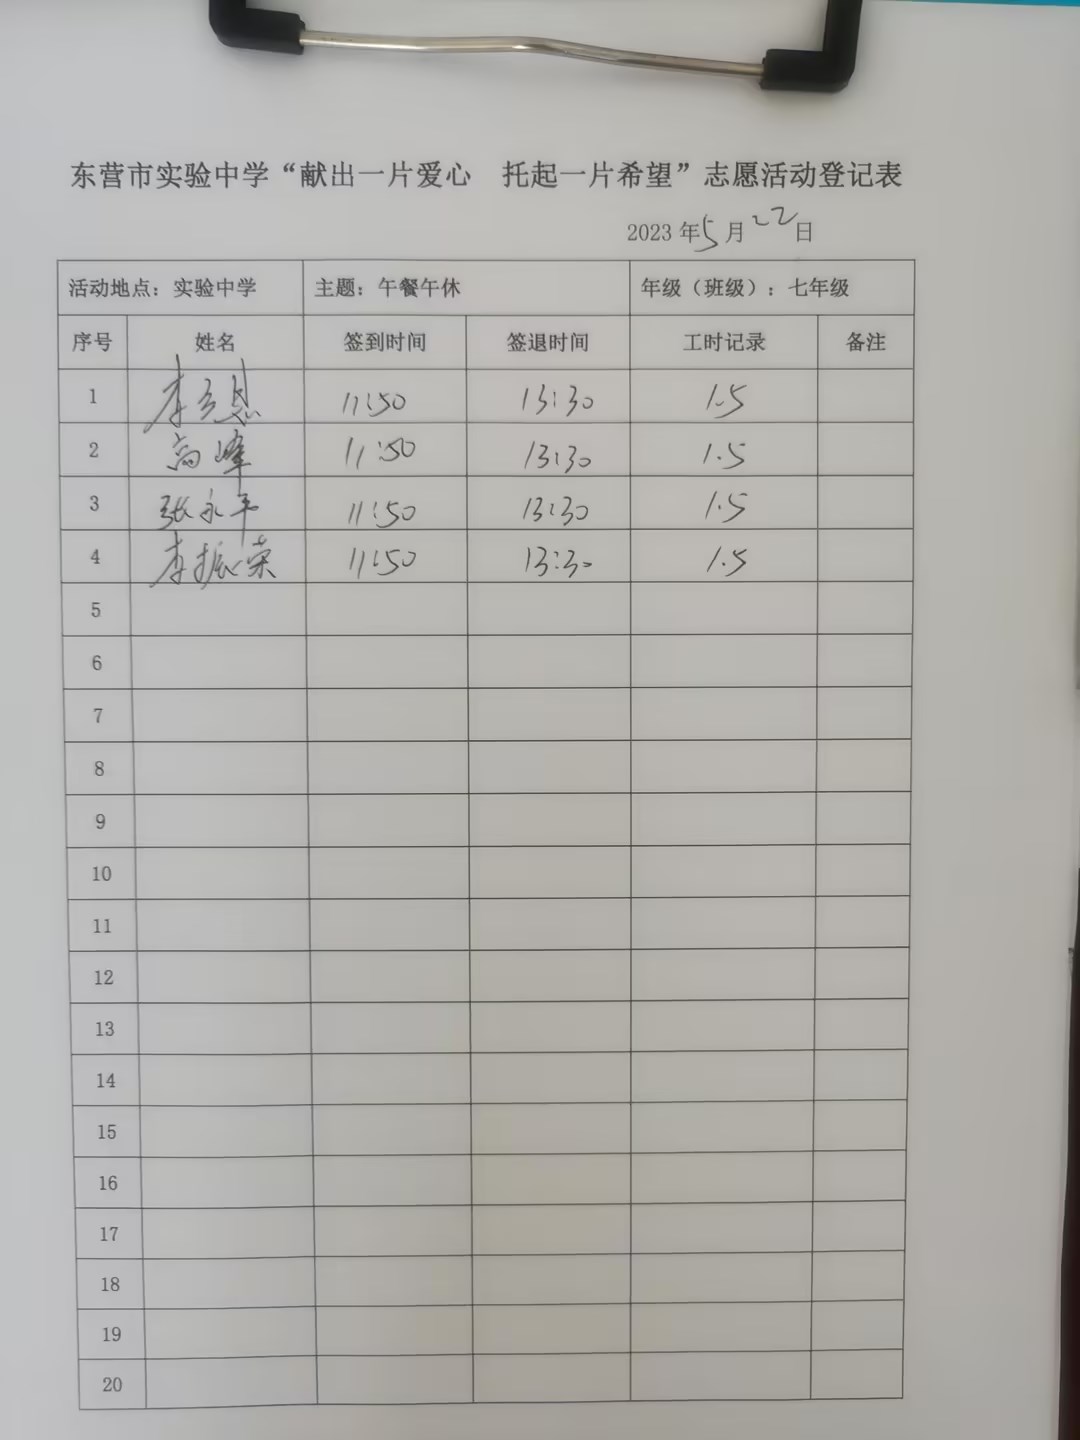 东营市实验中学“献出一片爱心 托起一片希望”志愿活动登记表
2023年5月22日
活动地点：实验中学 主题：午餐午休 年级（班级）：七年级
序号 姓名 签到时间 签退时间 工时记录 备注
1 李 11:50 13:30 1.5
2 高峰 11:50 13:30 1.5
3 张永平 11:50 13:30 1.5
4 李振荣 11:50 13:30 1.5
5
6
7
8
9
10
11
12
13
14
15
16
17
18
19
20